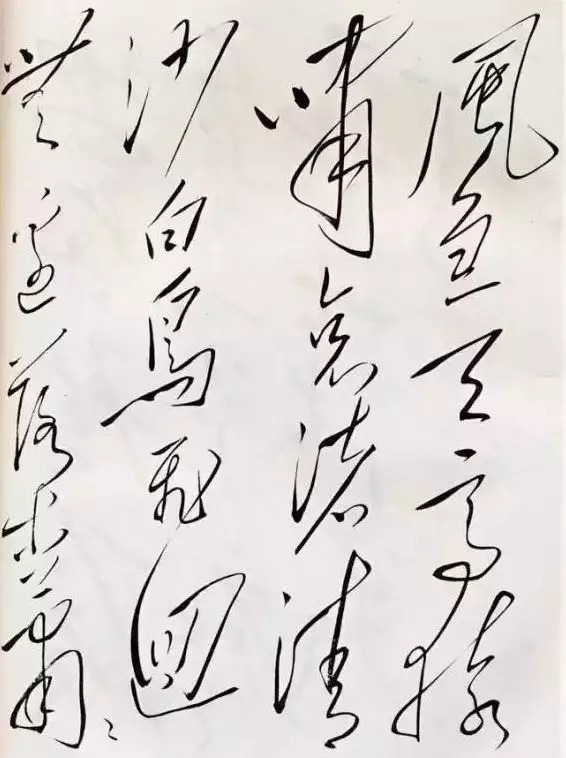 風急天高猿
嘯哀渚清
沙白鳥飛迴
無邊落木蕭〻